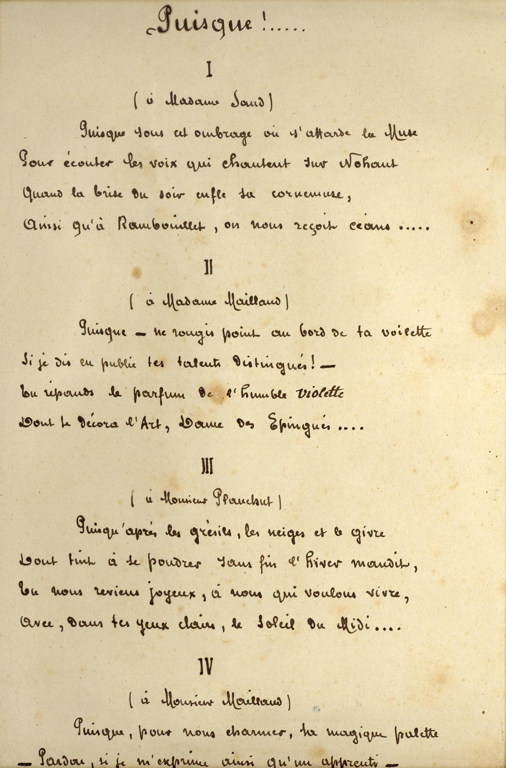 Puisque !.....
I
( à Madame Sand )
Puisque sous cet ombrage où s'attarde la Muse
Pour écouter les voix qui chantent sur Nohant
Quand la brise du soir enfle sa cornemuse,
Ainsi qu'à Rambouillet, on nous reçoit céans .....
II
( à Madame Maillaud )
Puisque — ne rougis point au bord de ta voilette
Si je dis en public tes talents distingués ! —
Tu répands le parfum de l'humble violette
Dont te décora l'Art, Dame des Epingués ....
III
( à Monsieur Planchut )
Puisqu'après les grésils, les neiges et le givre
Dont tint à se poudrer sans fin l'hiver maudit,
Tu nous reviens joyeux, à nous qui voulons vivre,
Avec, dans tes yeux clairs, le Soleil du Midi ....
IV
( à Monsieur Maillaud )
Puisque, pour nous charmer, ta magique palette
— Pardon, si je m'exprime ainsi qu'un apprenti —